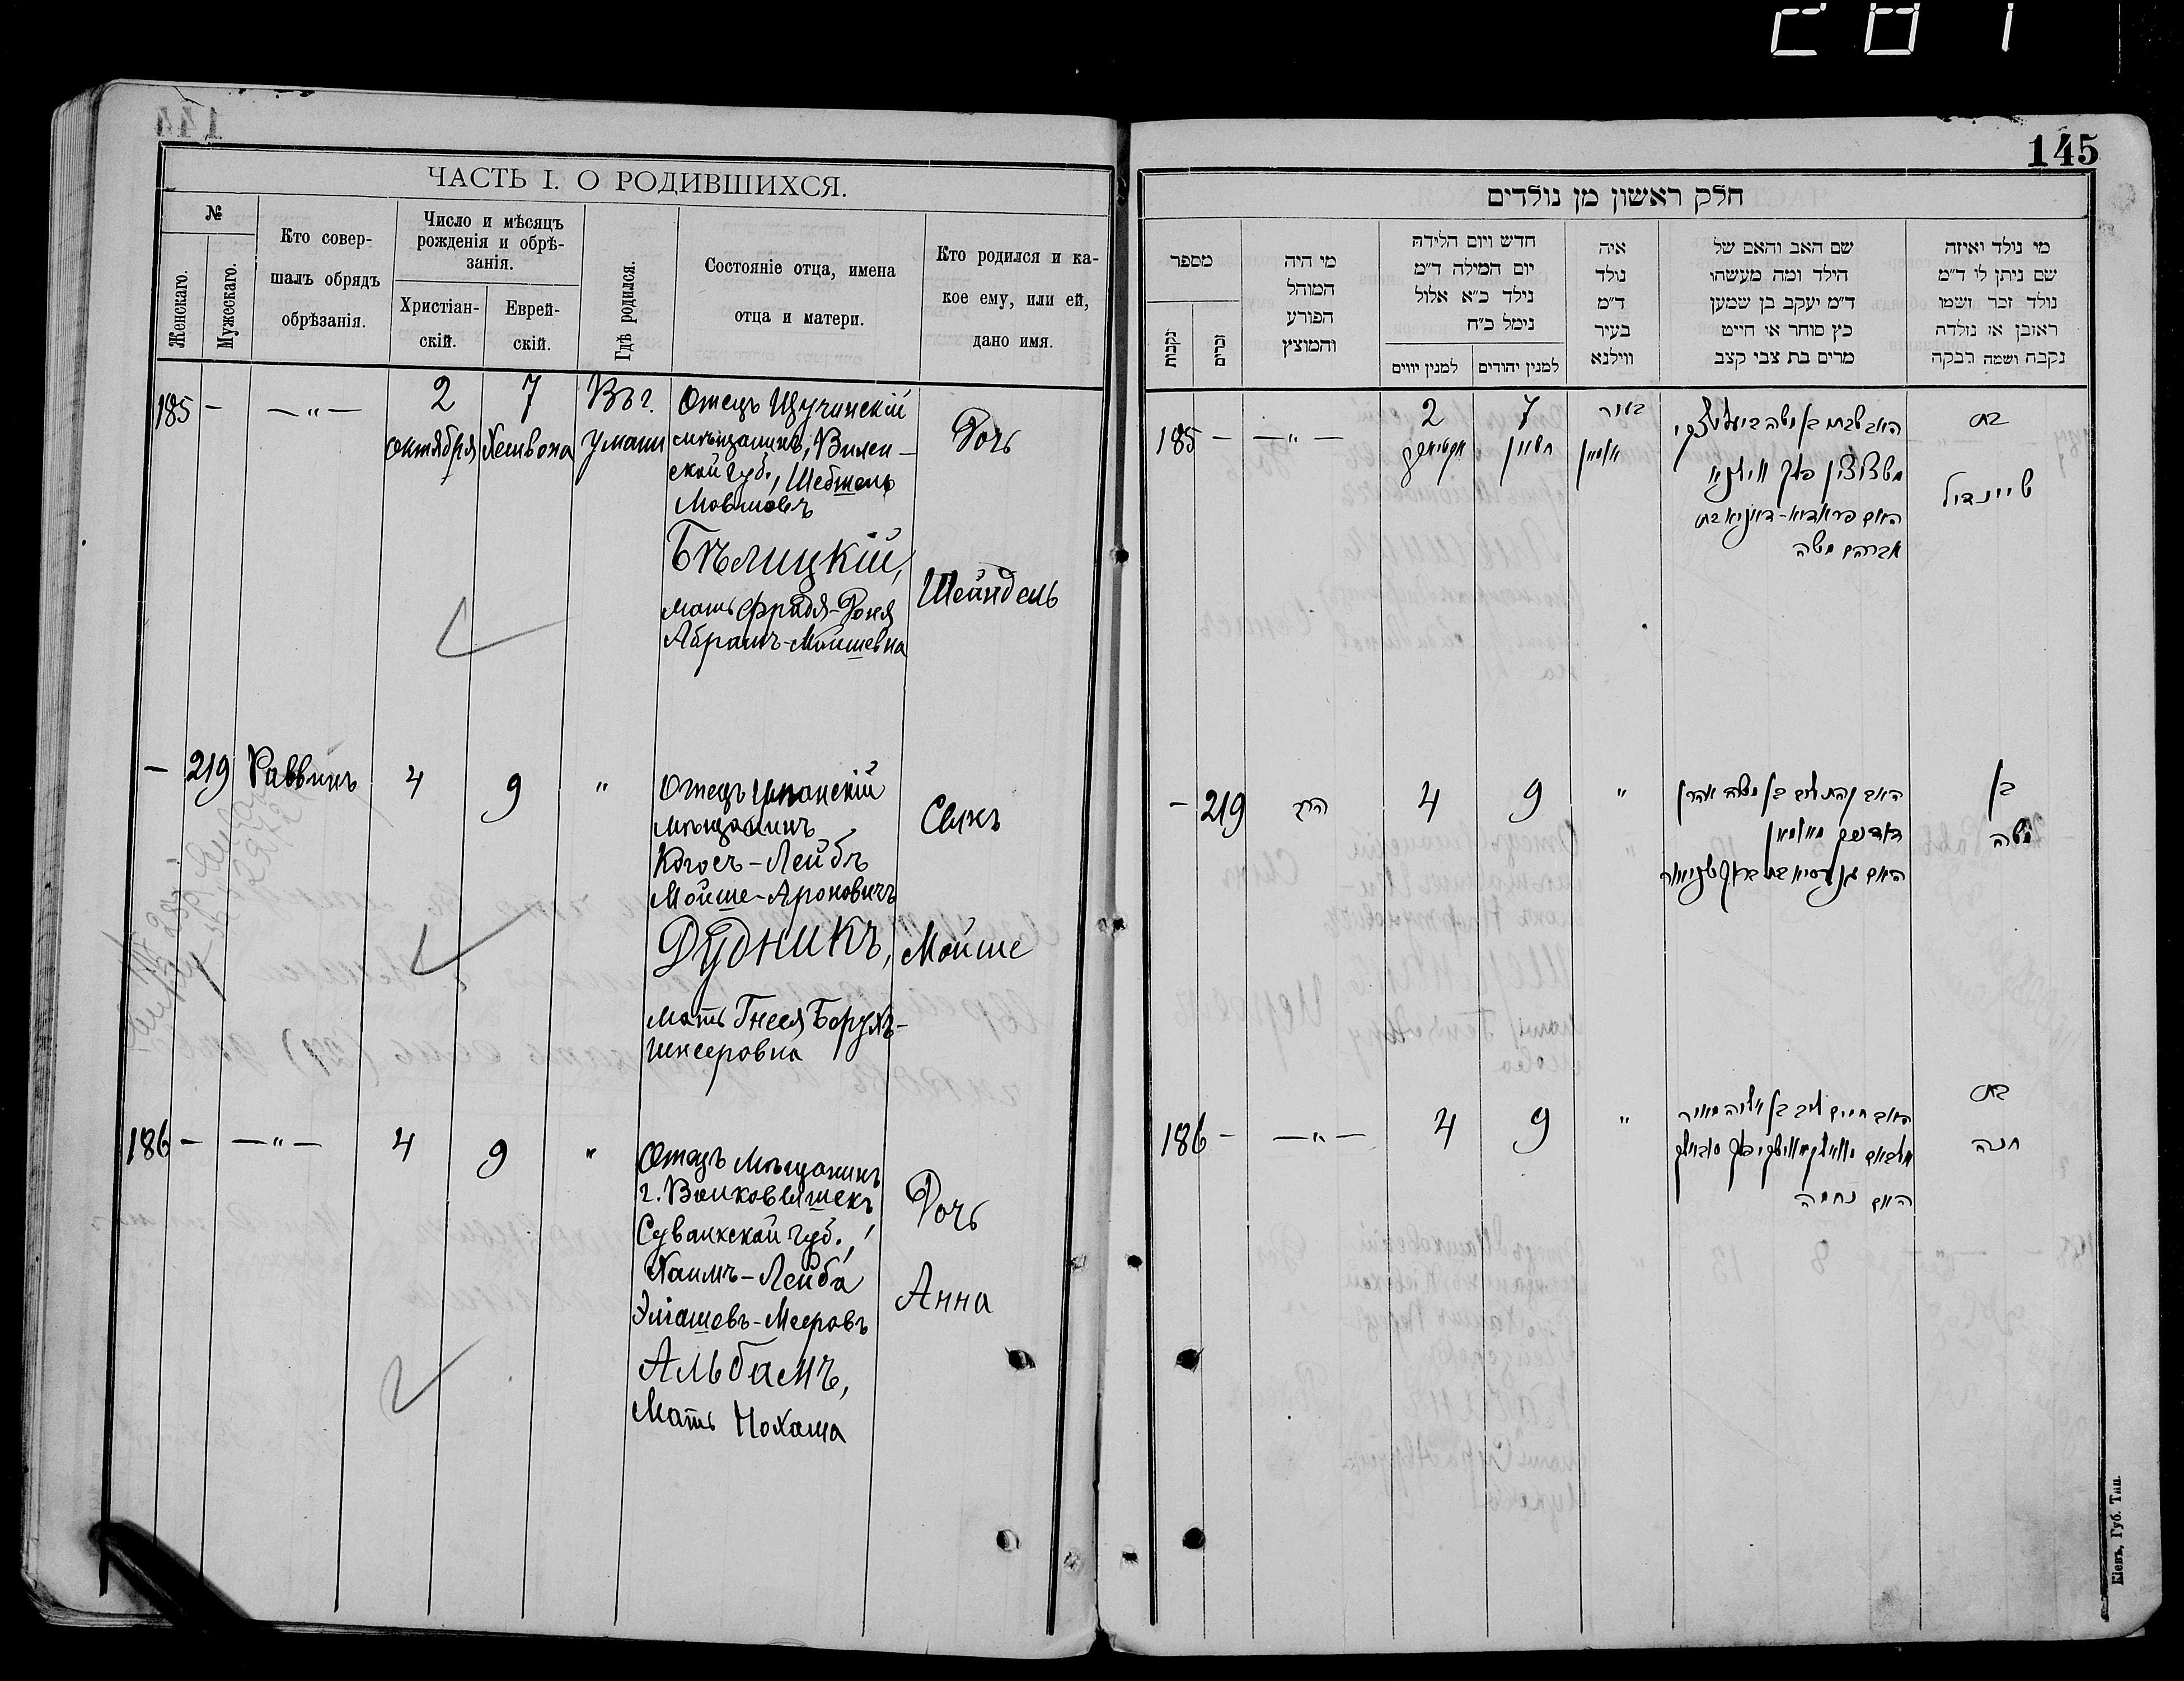 144
ЧАСТЬ I. О РОДИВШИХСЯ.
№
Женскаго.
Мужескаго.
Кто совер-
шалъ обрядъ
обрѣзанія.
Число и мѣсяцъ
рожденія и обрѣ-
занія.
Христіан-
скій.
Еврей-
скій.
Гдѣ родился.
Состояніе отца, имена
отца и матери.
Кто родился и ка-
кое ему, или ей,
дано имя.
185 — —„—
2
октября
7
Хешвона
Въ г.
Умани
Отецъ Щучинскій
мѣщанинъ, Вилен-
ской губ., Шебшель
Мовшовъ
Бѣлицкій,
мать Фрадя-Доня
Абрамъ-Мойшевна
Дочь
Шейндель
— 219 Раввинъ 4 9 „
Отецъ Уманскій
мѣщанинъ
Когосъ-Лейбъ
Мойше-Ароновичъ
Дудникъ,
мать Гнеся Борухъ-
Шнееровна
Сынъ
Мойше
186 — —„— 4 9 „
Отецъ мѣщанинъ
г. Волковышекъ
Сувалкской губ.,
Хаимъ-Лейба
Эліашевъ-Мееровъ
Альбамъ,
Мать Нохама
Дочь
Анна
145
חלק ראשון מן נולדים
מספר
נקבות
זכרים
מי היה
המוהל
הפורע
והמוצץ
חדש ויום הלידה
יום המילה ד״מ
נילד כ״א אלול
נימל כ״ח
למנין יווים
למנין יהודים
איה
נולד
ד״מ
בעיר
ווילנא
שם האב והאם של
הילד ומה מעשהו
ד״מ יעקב בן שמען
כץ סוחר או חייט
מרים בת צבי קצב
מי נולד ואיזה
שם ניתן לו ד״מ
נולד זכר ושמו
ראובן או נולדה
נקבה ושמה רבקה
185 — —„—
2
7
חשוון
בעיר
אומאן
האב שבתי בן משה ביעליצקי
האם פראדיא-דאניא בת
אברהם משה
בת
שיינדיל
— 219 הרב 4 9 „
האב קהת ליב בן משה אהרן
דודניק מאומאן
בן
משה
186 — —„— 4 9 „
האב חיים ליב בן אליה מאיר
האם נחמה
בת
חנה
Кіевъ, Губ. Тип.